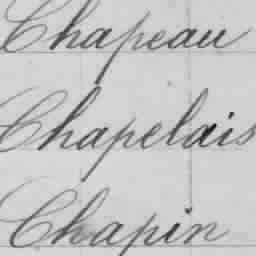 Chapeau
Chapelais
Chapin